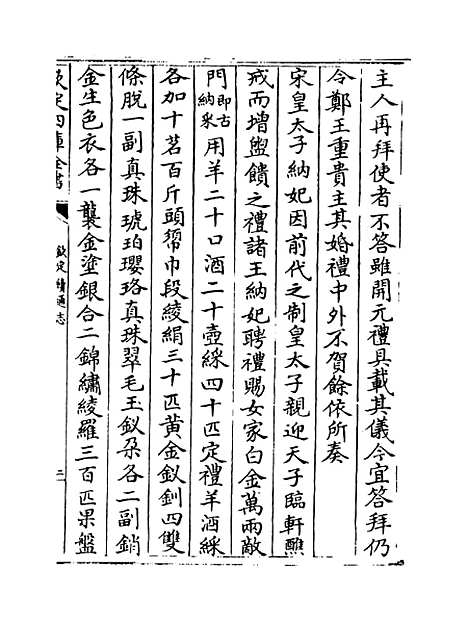 主人再拜使者不答雖開元禮具載其儀今宜答拜仍
令鄭王重貴主其婚禮中外不賀餘依所奏
宋皇太子納妃因前代之制皇太子親迎天子臨軒醮
戒而增盥饋之禮諸王納妃聘禮賜女家白金萬兩敵
門即古納采用羊二十口酒二十壺綵四十匹定禮羊酒綵
各加十茗百斤頭䈂巾段綾絹三十匹黄金釵釧四雙
條脱一副真珠琥珀瓔珞真珠翠毛玉釵朶各二副銷
金生色衣各一襲金塗銀合二錦繡綾羅三百匹果盤
欽定四庫全書
欽定續通志